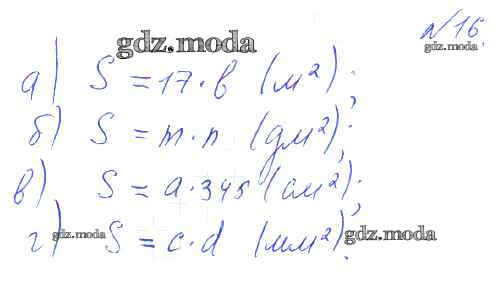 №16.
gdz.moda
gdz.moda
а) S = 17 · b (м²);
б) S = m · n (дм²);
в) S = a · 345 (см²);
г) S = c · d (мм²).
gdz.moda
gdz.moda